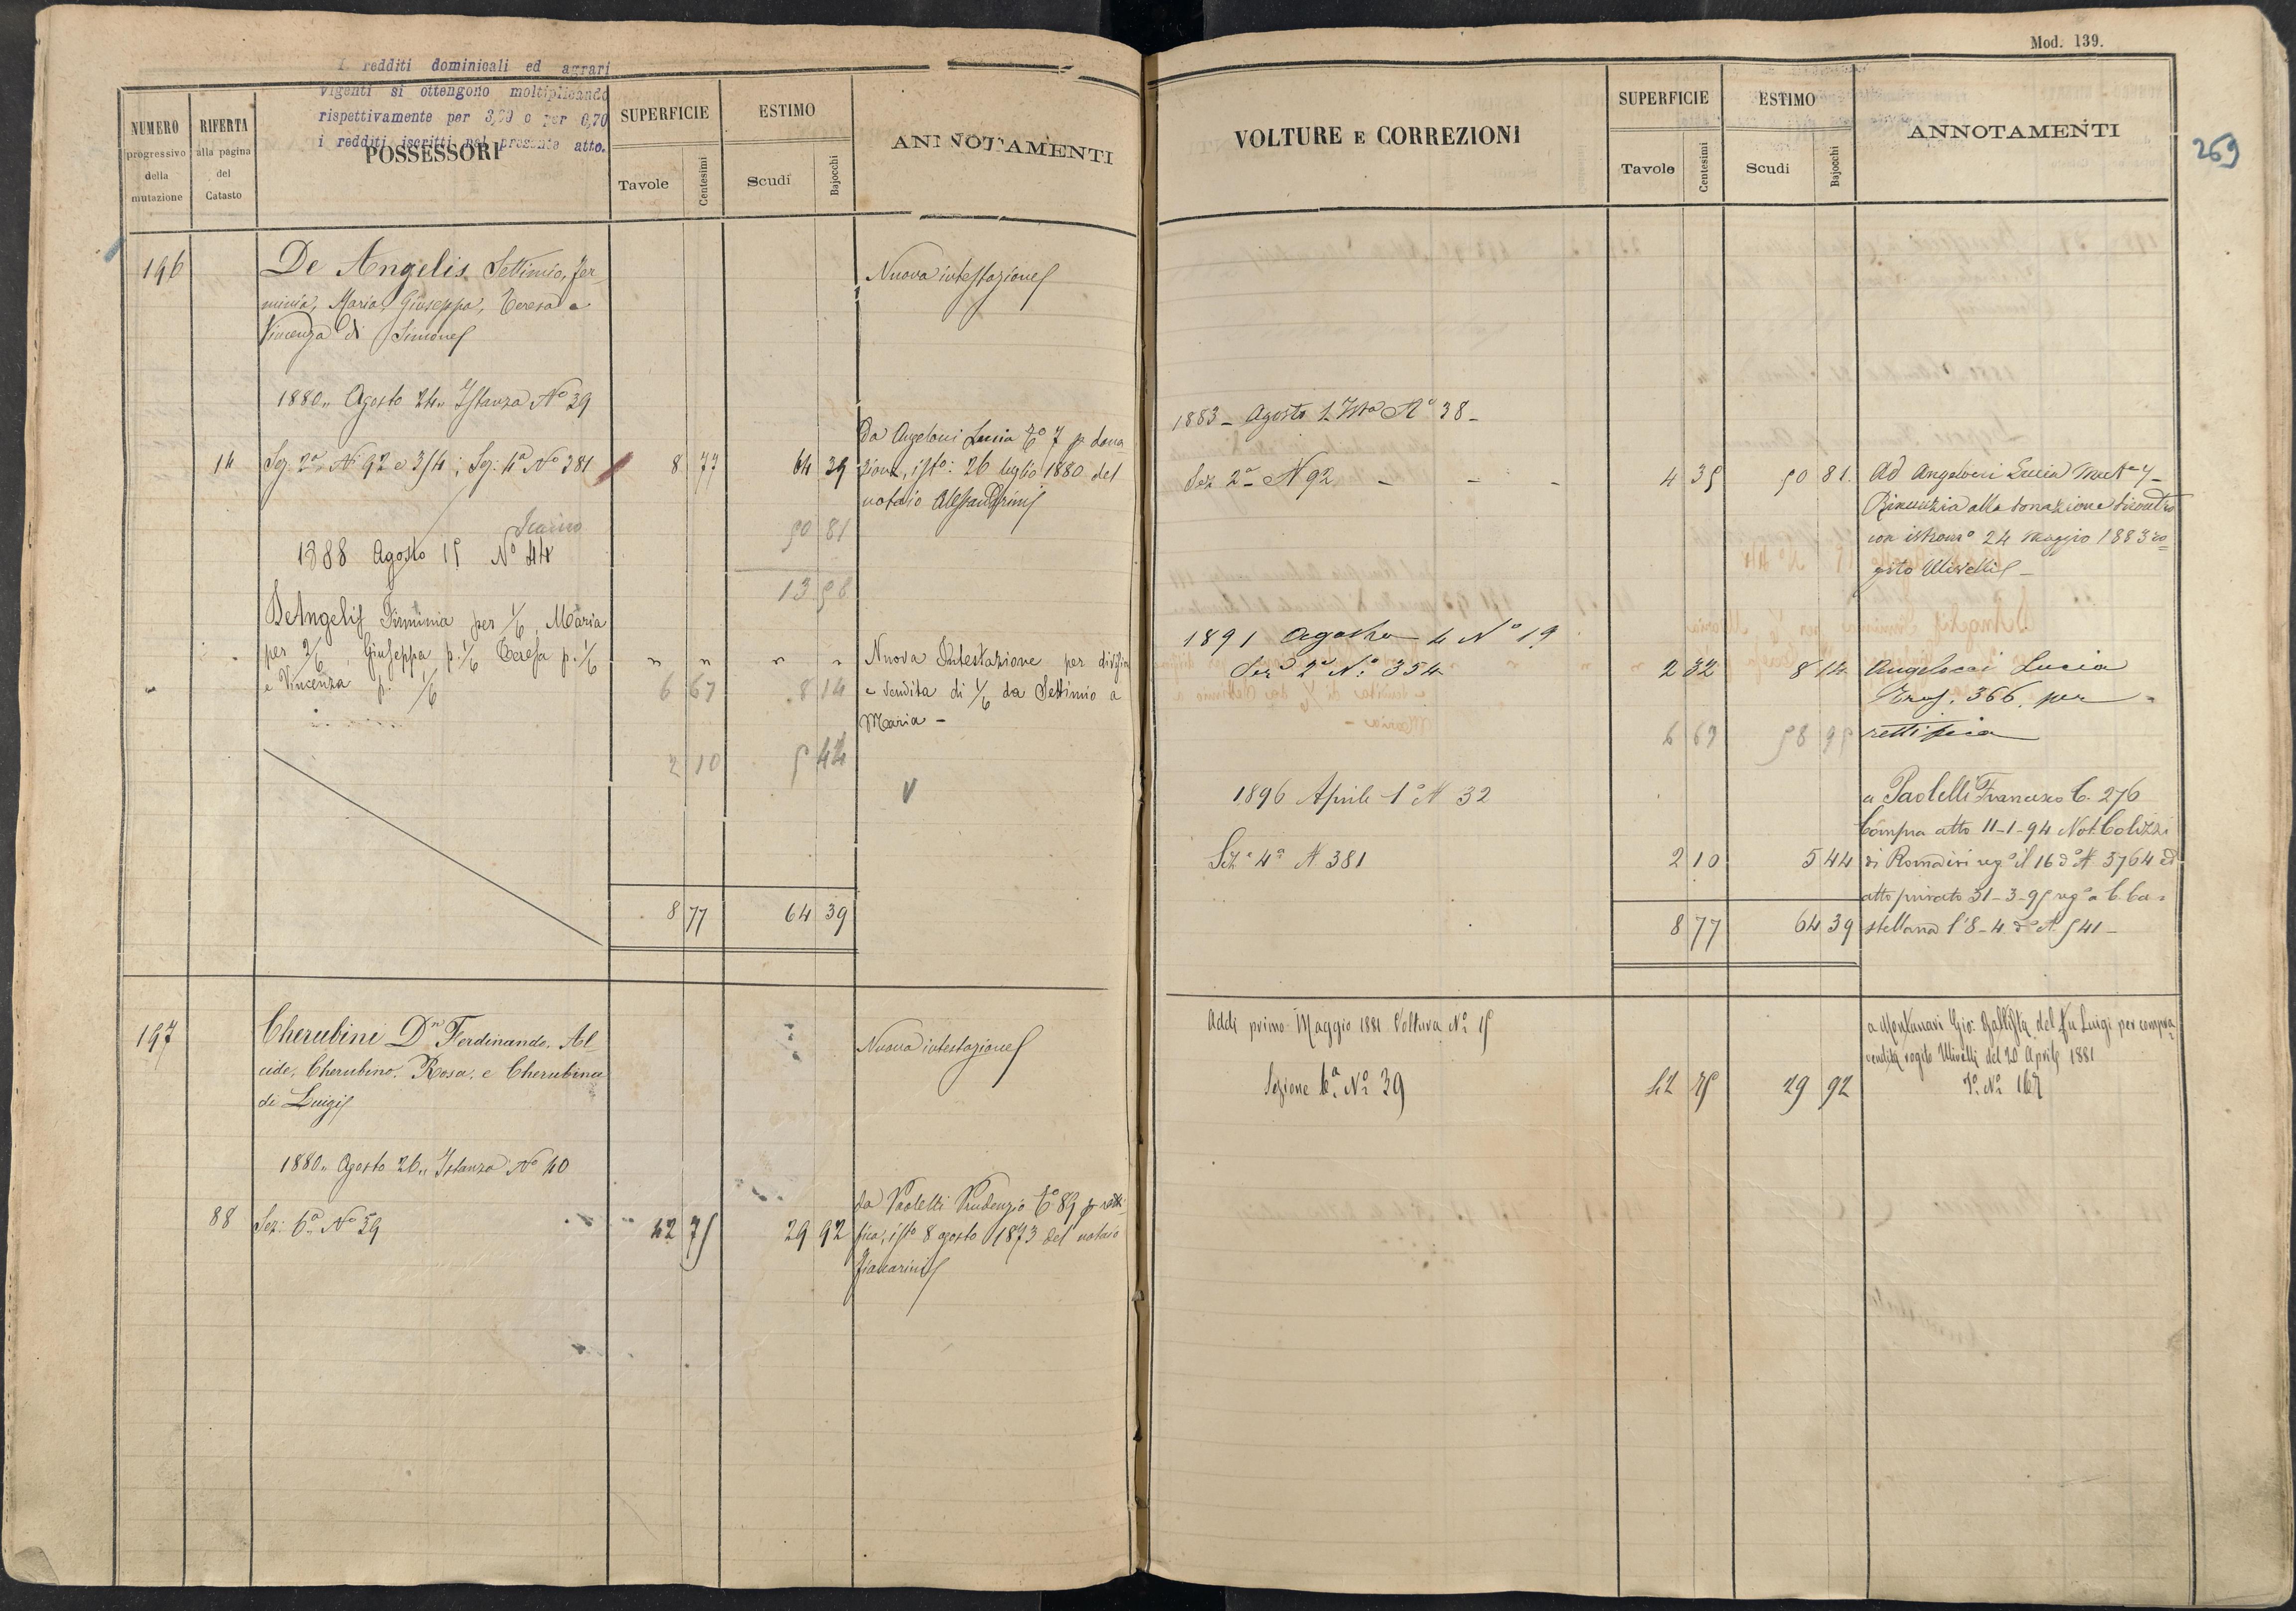 I redditi dominicali ed agrari
vigenti si ottengono moltiplicando
rispettivamente per 3,20 e per 0,70
i redditi iscritti nel presente atto.
NUMERO
progressivo
della
mutazione
RIFERTA
alla pagina
del
Catasto
POSSESSORI
SUPERFICIE
Tavole
Centesimi
ESTIMO
Scudi
Bajocchi
ANNOTAMENTI
196
De Angelis Settimio, Fer-
minia, Maria, Giuseppa, Teresa e
Vincenza di Simone
Nuova intestazione
1880 „ Agosto 24 „ Istanza No 39
14
Sez. 2a Ni 92 e 354; Sez: 4a No 381
8 77
64 39
Da Angeloni Lucia To 7 p dona
zione, isto: 26 luglio 1880 del
notaio Alessandrini
50 81
13 58
1888 Agosto 15 No 44
DeAngelis Firminia per 1/6, Maria
per 2/6, Giuseppa p. 1/6 Teresa p. 1/6
e Vincenza p. 1/6
" " " "
6 67
8 14
Nuova Intestazione per divisione
e vendita di 1/6 da Settimio a
Maria -
2 10
5 44
V
8 77
64 39
197
Cherubini Dn Ferdinando, Al-
cide, Cherubino, Rosa, e Cherubina
di Luigi
Nuova intestazione
1880 „ Agosto 26 „ Istanza No 40
88
Sez: 6a No 39
42 75
29 92
da Paoletti Prudenzio To 89 p retti
fica, isto 8 agosto 1873 del notaio
Mod. 139.
269
VOLTURE E CORREZIONI
SUPERFICIE
Tavole
Centesimi
ESTIMO
Scudi
Bajocchi
ANNOTAMENTI
1883 - Agosto 1 Ista No 38 -
Sez 2a N 92 - - -
4 35
50 81.
Ad Angeloni Lucia
Rinunzia alla donazione dicontro
con istromo 24 Maggio 1883 ro=
gito Ulivelli -
1891 Agosto 4 No 19
Sez 2a No 354
2 32
8 14
Angelocci Lucia
Prog. 366 per
rettifica
6 67
58 95
1896 Aprile 1o N 32
Seza 4a N 381
2 10
5 44
a Paolelli Francesco C. 276
Compra atto 11-1-94 Not. Colizzi
di Roma ivi rego il 16 do N 3764 ed
atto privato 31-3-95 rego a C. Ca=
stellana l'8-4 do N 541 -
8 77
64 39
Addi primo Maggio 1881 Voltura No 15
Sezione 6a No 39
42 75
29 92
a Montanari Gio: Battista del fu Luigi per compra
vendita rogito Ulivelli del 20 Aprile 1881